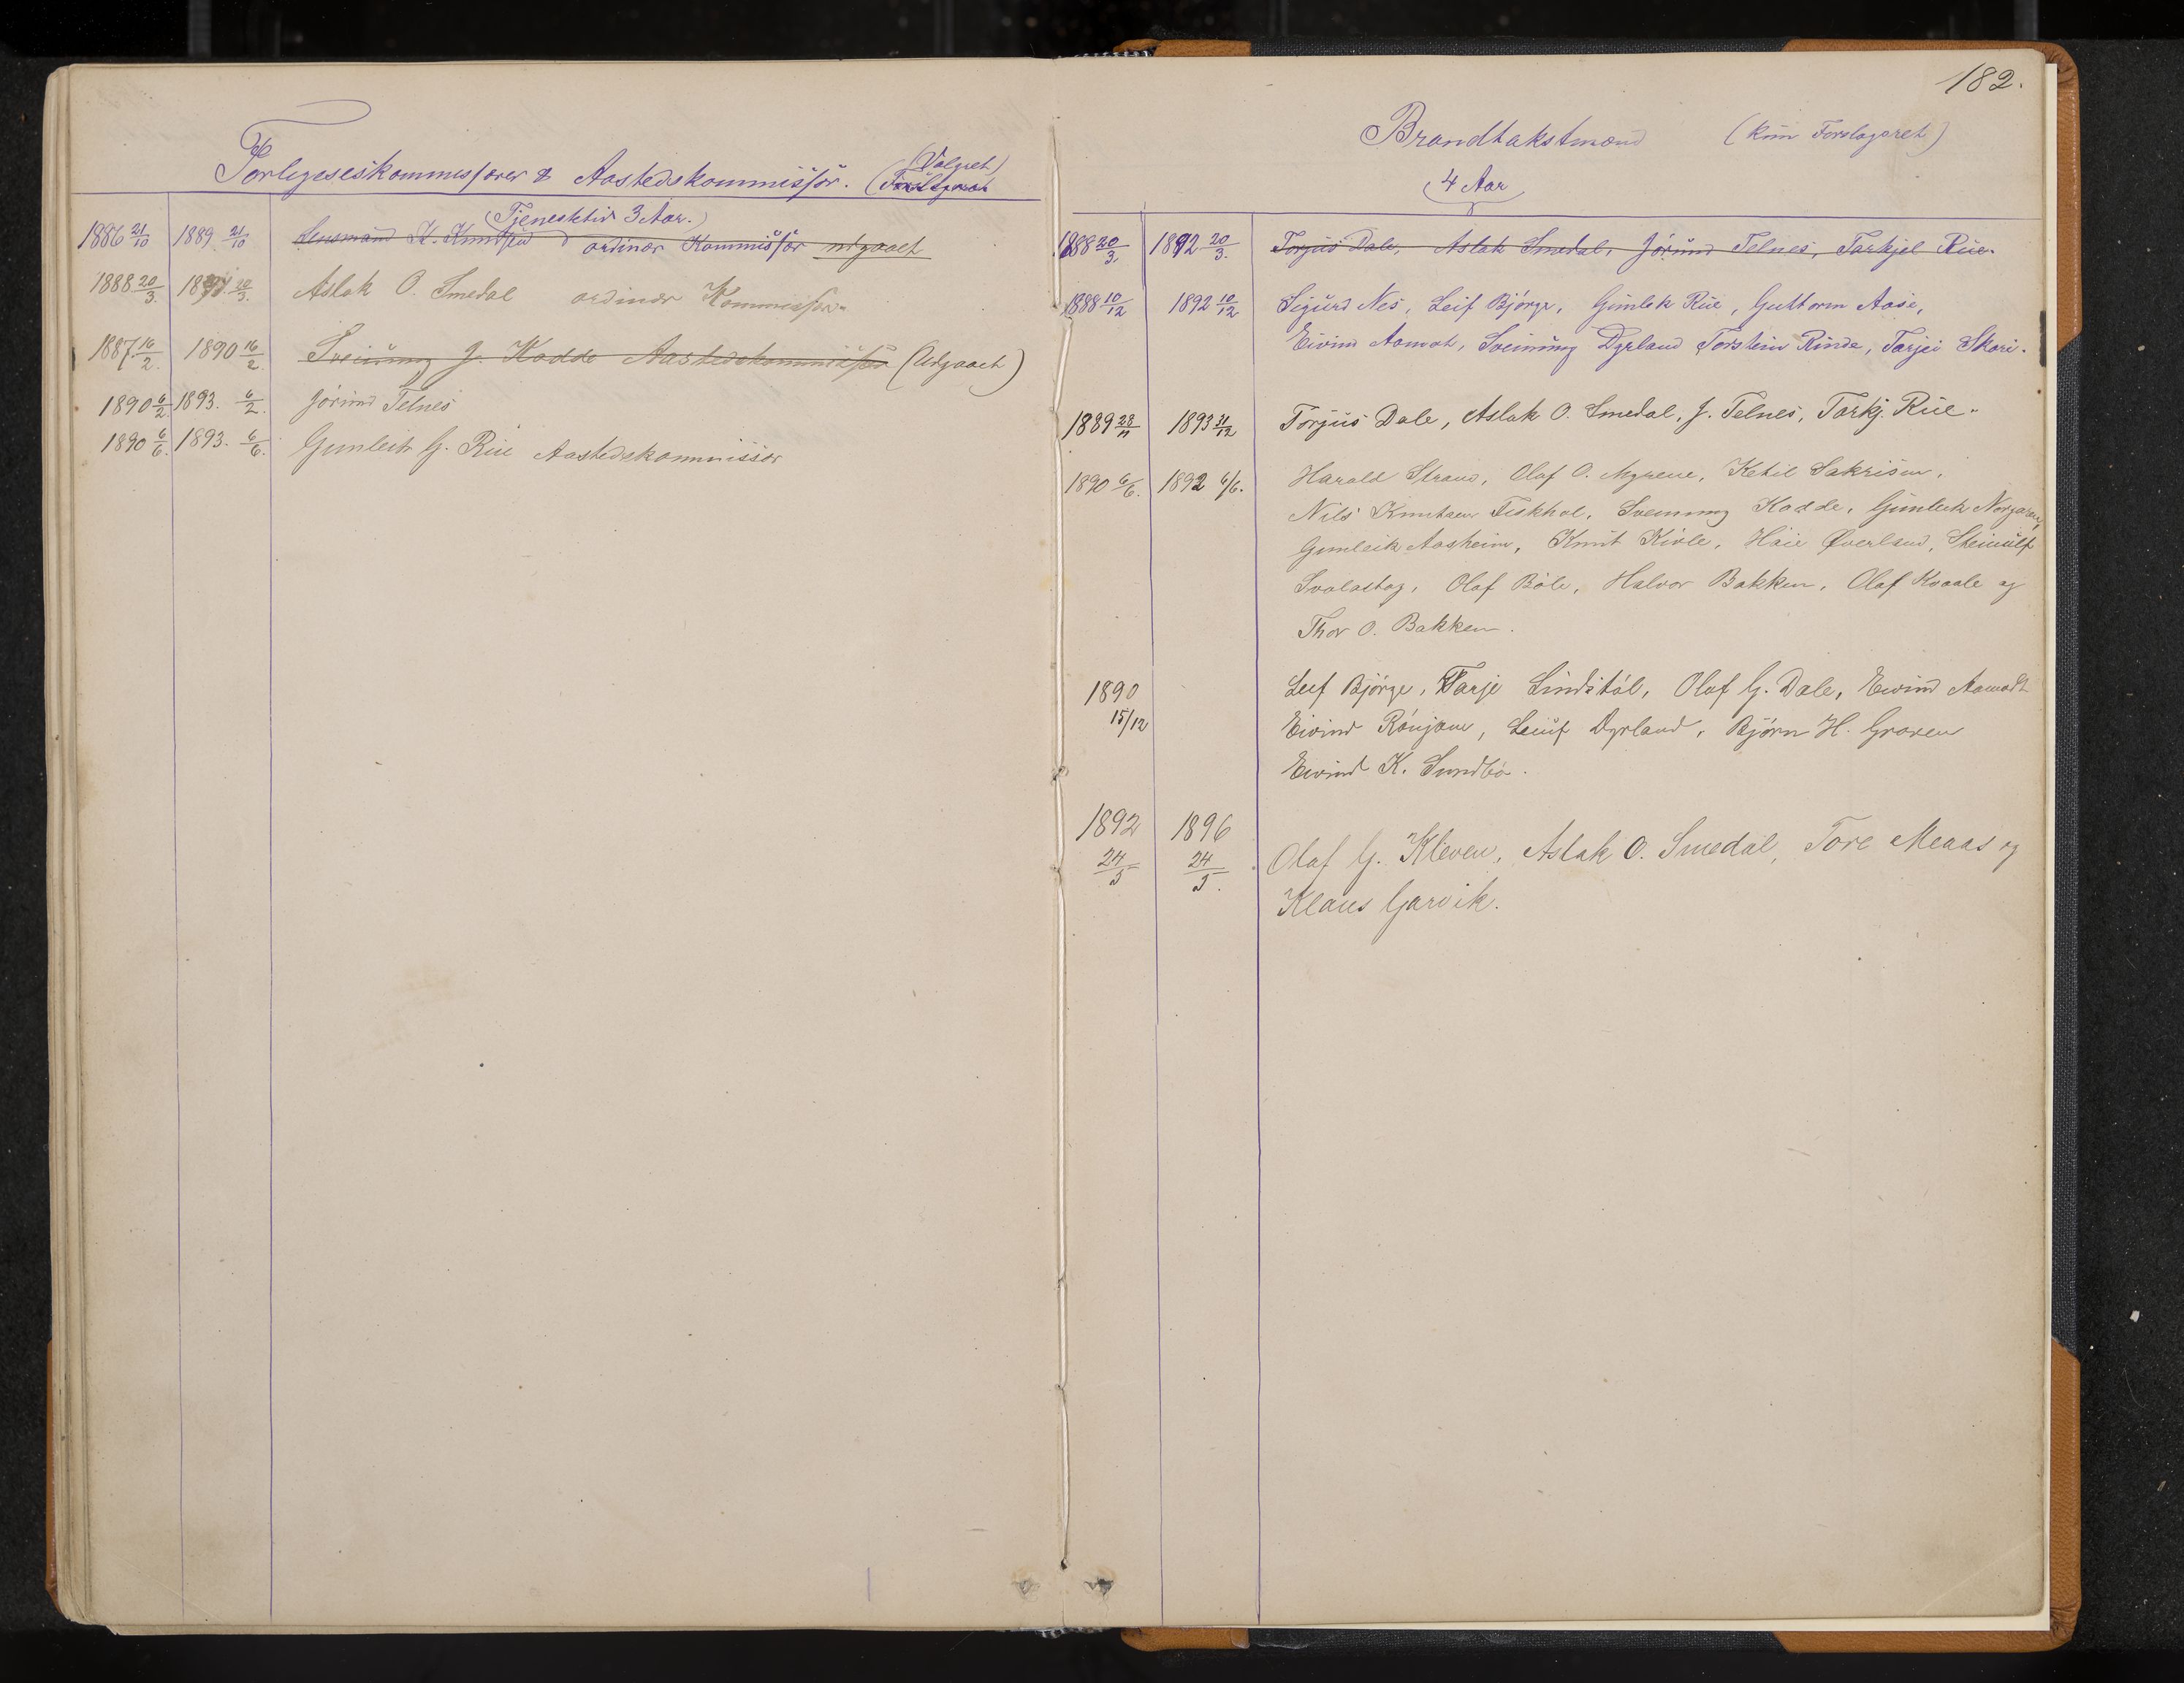 Forligeseskommissører & Aastedskommissør. (Valgret)
(Tjenestetid 3 Aar.)
1886 21/10 1889 21/10 Lensmand K. Knudsen ordinær Kommissør utgaaet
1888 20/3. 1891 20/3. Aslak O. Smedal ordinær Kommissær.
1887 16/2. 1890 16/2. Sveinung J. Kodde Aastedskommissær (Udgaaet)
1890 6/2. 1893. 6/2. Jórund Telnes
1890 6/6. 1893. 6/6. Gunleik G. Rue Aastedskommissær
182.
Brandtakstmænd (kun Forslagsret)
4 Aar
1888 20/3. 1892 20/3. Torjus Dale, Aslak Smedal, Jórund Telnes, Tarkjel Rue.
1888 10/12 1892 10/12 Sigurd Nes, Leif Bjórge, Gunlek Rue, Guttorm Aase,
Eivind Aamot, Sveinung Dyrland Torstein Rinde, Tarjei Skori.
1889 28/11 1893 31/12 Torjus Dale, Aslak O. Smedal, J. Telnes, Tarkj. Rue.
1890 6/6. 1892 6/6. Harald Strand, Olaf O. Myrene, Ketil Sakrisen,
Nils Knutsen Fiskhol, Sveinung Kodde, Gunleik Norgaren,
Gunleik Aasheim, Knut Kivle, Haie Øverland, Steinulf
Svalastog, Olaf Bóle, Halvor Bakken, Olaf Kvaale og
Thor O. Bakken.
1890 Leif Bjórge, Tarje Lindstól, Olaf G. Dale, Eivind Aamodt
15/12 Eivind Rónjom, Leiuf Dyrland, Bjórn H. Graven
Eivind K. Sundbó.
1892 1896
24/5 24/5. Olaf G. Kleven, Aslak O. Smedal, Tore Meaas og
Klaus Garvik.